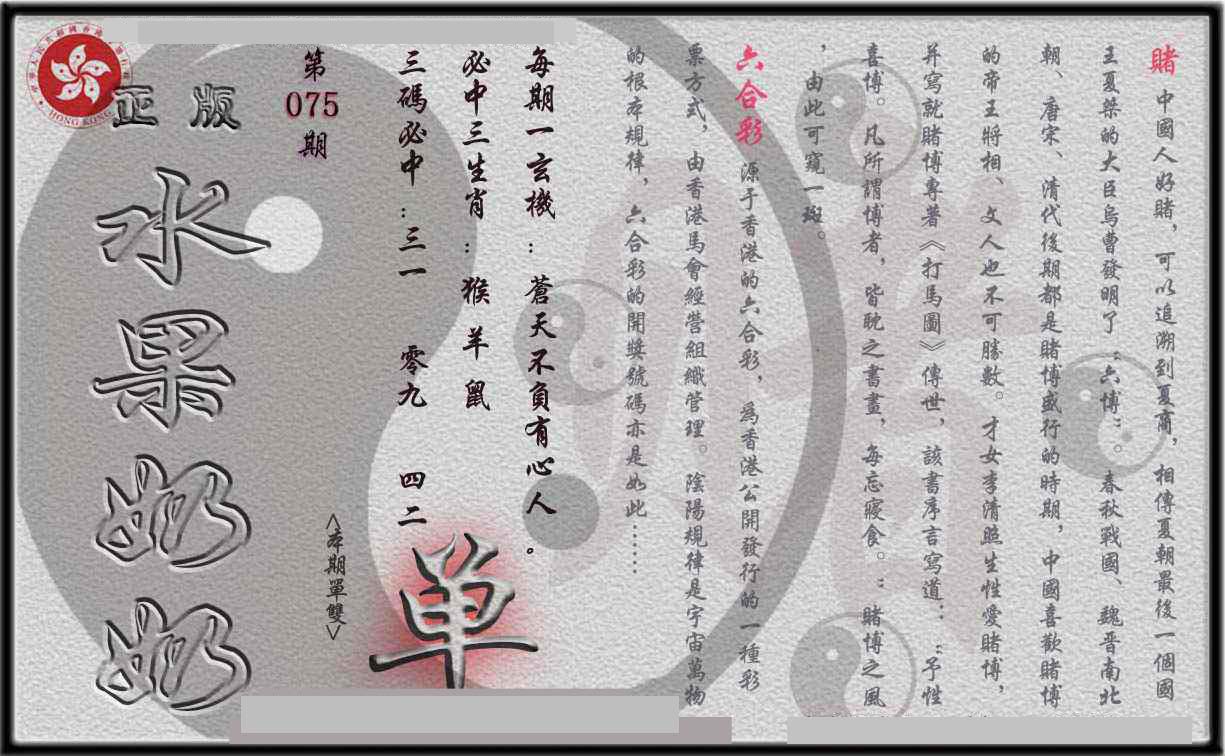 賭 中國人好賭，可以追溯到夏商，相傳夏朝最後一個國
王夏桀的大臣烏曹發明了“六博”。春秋戰國、魏晋南北
朝、唐宋、清代後期都是賭博盛行的時期，中國喜歡賭博
的帝王將相、文人也不可勝數。才女李清照生性愛賭博，
并寫就賭博專著《打馬圖》傳世，該書序言寫道：“予性
喜博。凡所謂博者，皆耽之書畫，每忘寢食。”賭博之風
，由此可窺一斑。
六合彩 源于香港的六合彩，爲香港公開發行的一種彩
票方式，由香港馬會經營組織管理。陰陽規律是宇宙萬物
的根本規律，六合彩的開獎號碼亦是如此……
每期一玄機：蒼天不負有心人。
必中三生肖：猴羊鼠
三碼必中：三一 零九 四二
单
<本期單雙>
第
075
期
正版
水果奶奶
HONG KONG